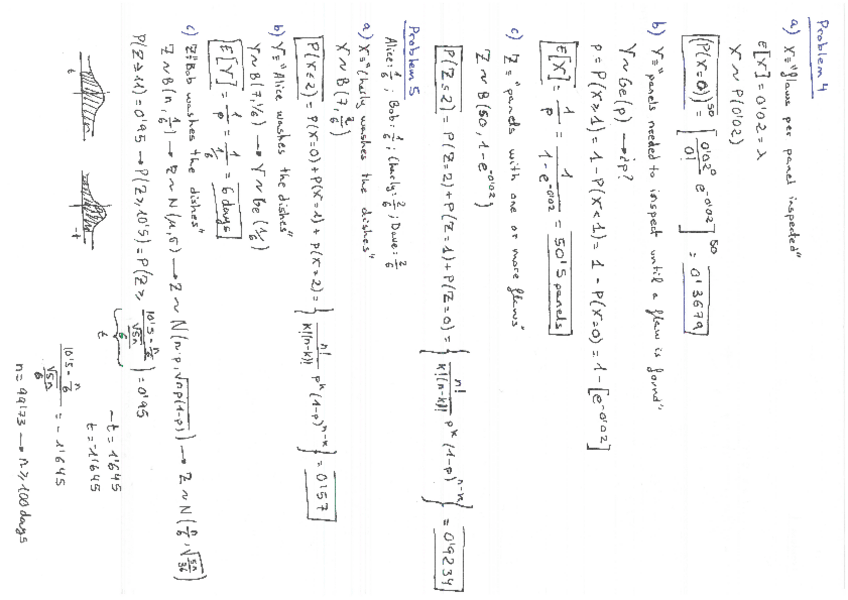 Problem 4
a) X≡"flaws per panel inspected"
E[X] = 0'02 = λ
X ~ P(0'02)
(P(X=0))^50 = [0'02^0/0! e^-0'02]^50 = 0'3679
b) Y≡"panels needed to inspect until a flaw is found"
Y ~ Ge(p) → ¿p?
p = P(X≥1) = 1 - P(X<1) = 1 - P(X=0) = 1 - [e^-0'02]
E[X] = 1/p = 1/(1-e^-0'02) = 50'5 panels
c) Z≡"panels with one or more flaws"
Z ~ B(50, 1-e^-0'02)
P(Z≤2) = P(Z=2) + P(Z=1) + P(Z=0) = {n!/(k!(n-k)!) p^k (1-p)^n-k} = 0'9234
Problem 5
Alice: 1/6 ; Bob: 1/6 ; Charly: 2/6 ; Dave: 2/6
a) X≡"Charly washes the dishes"
X ~ B(7, 2/6)
P(X≤2) = P(X=0) + P(X=1) + P(X=2) = {n!/(k!(n-k)!) p^k (1-p)^n-k} = 0'57
b) Y≡"Alice washes the dishes"
Y ~ B(7, 1/6) → Y ~ Ge(1/6)
E[Y] = 1/p = 1/(1/6) = 6 days
c) Z≡"Bob washes the dishes"
Z ~ B(n, 1/6) → Z ~ N(μ, σ) → Z ~ N(n·p, √np(1-p)) → Z ~ N(n/6, √5n/36)
P(Z≥11) = 0'95 → P(Z≥10'5) = P(Z≥ (10'5 - n/6)/(√5n/6)) = 0'95
t
t
-t
-t = 1'645
t = -1'645
(10'5 - n/6)/(√5n/6) = -1'645
n = 99'73 → n≥100 days